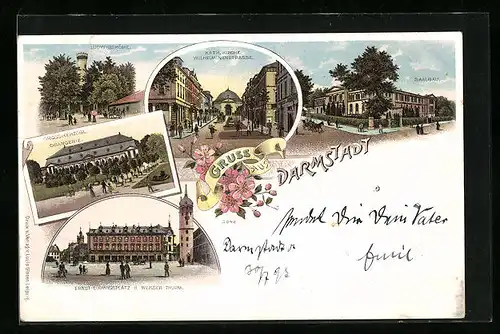 LUDWIGSHÖHE.
KATH. KIRCHE.
WILHELMINENSTRASSE.
SAALBAU.
GROSSHERZOGL.
ORANGERIE.
GRUSS
AUS
DARMSTADT
sendet Dir Dein Vater
Emil
Darmstadt
ERNST-LUDWIGSPLATZ U. WEISSER THURM.